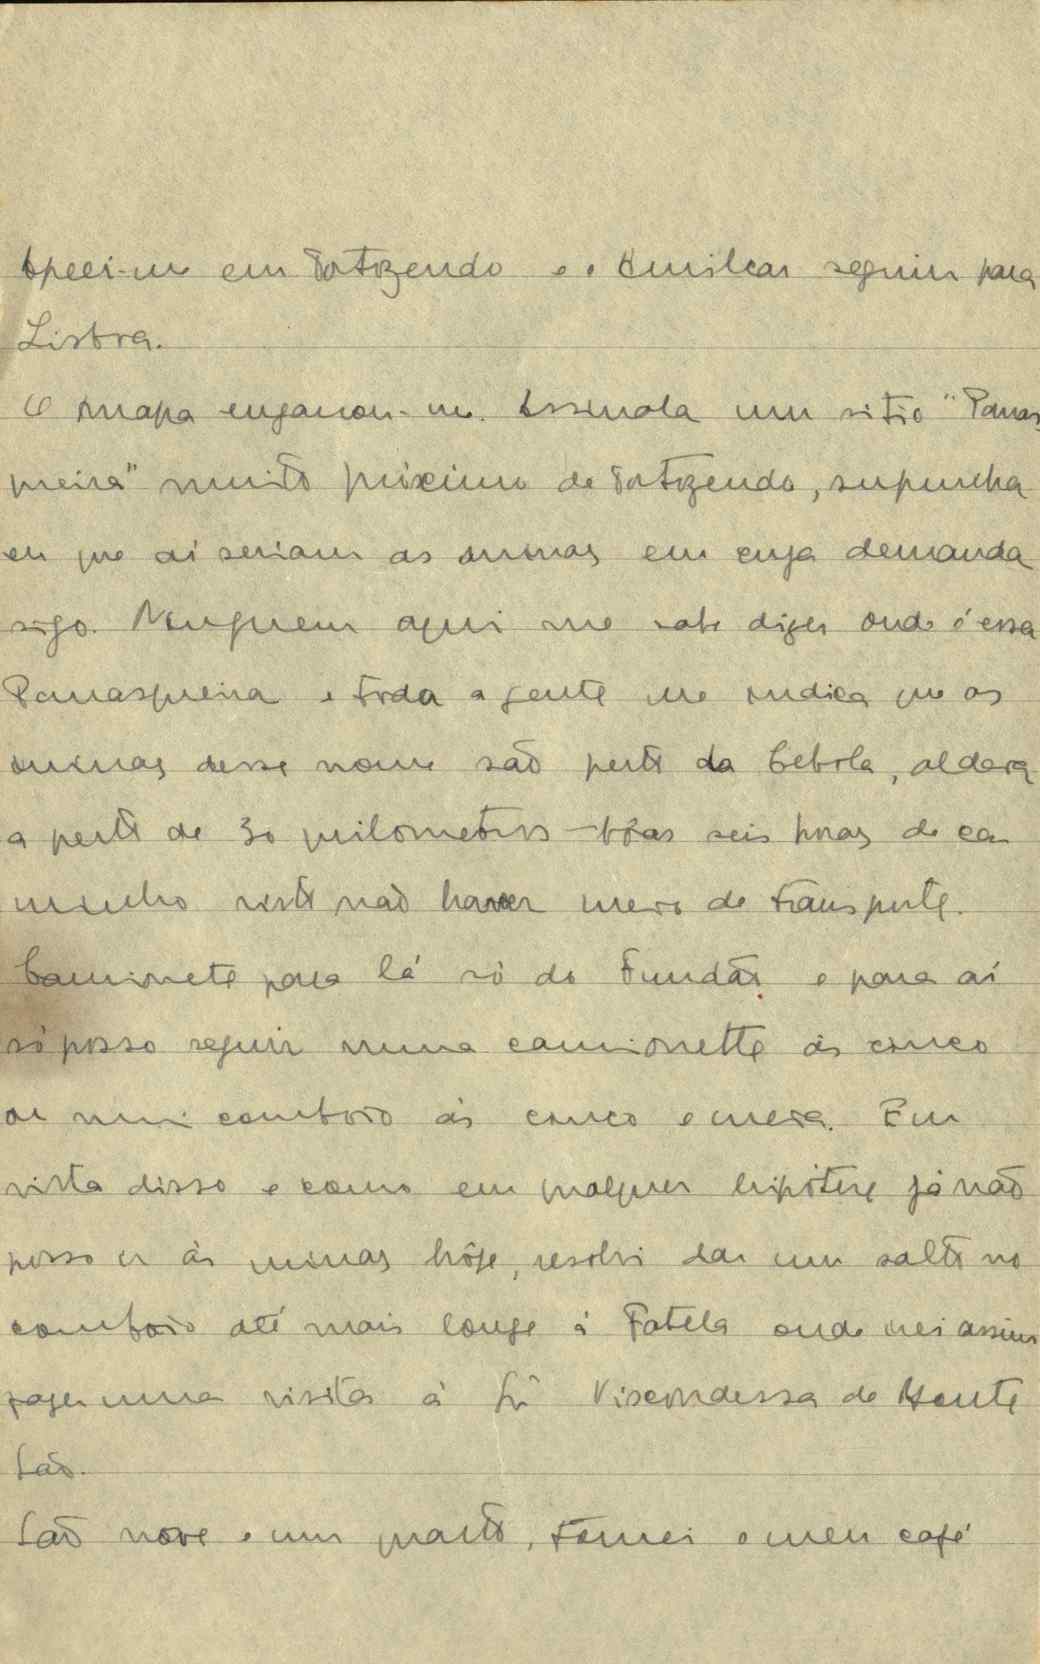 Apeei-me em Tortozendo e o Amilcar seguiu para
Lisboa.
O mapa enganou-me. Assinala um sitio "Panas
queira" muito próximo de Tortozendo, supunha
eu que aí seriam as minas em cuja demanda
sigo. Ninguem aqui me sabe dizer onde é essa
Panasqueira e toda a gente me indica que as
minas desse nome são perto da Cebola, aldeia
a perto de 30 quilometros - bôas seis horas de ca
minho visto não haver meio de transporte.
Camionete para lá só do Fundão e para aí
só posso seguir numa camionette ás cinco
ou num comboio ás cinco e meia. Em
vista disso e como em qualquer hipótese já não
posso ir ás minas hôje, resolvi dar um salto no
comboio até mais longe á Fatela onde irei assim
fazer uma visita á Srª Viscondessa de Monte
São.
São nove e um quarto, tomei o meu café